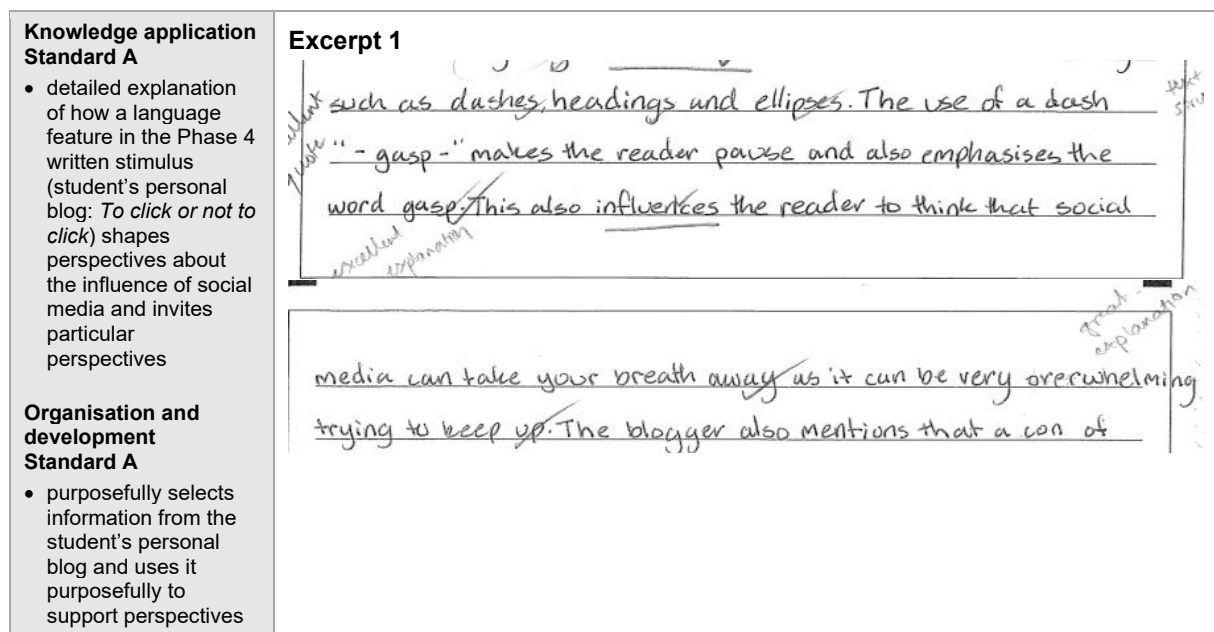 Knowledge application
Standard A
• detailed explanation
of how a language
feature in the Phase 4
written stimulus
(student's personal
blog: To click or not to
click) shapes
perspectives about
the influence of social
media and invites
particular
perspectives
Organisation and
development
Standard A
• purposefully selects
information from the
student's personal
blog and uses it
purposefully to
support perspectives
Excerpt 1
such as dashes, headings and ellipses. The use of a dash
text
quote
"- gasp -" makes the reader pause and also emphasises the
word gasp. This also influences the reader to think that social
excellent
explanation
great
explanation
media can take your breath away as it can be very overwhelming
trying to keep up. The blogger also mentions that a con of